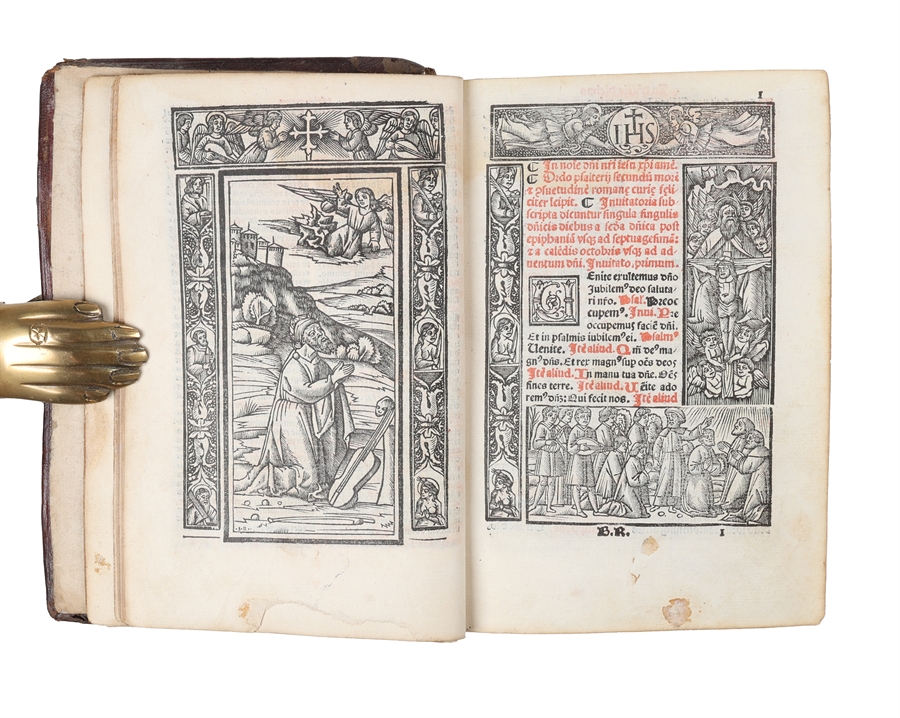 1
IHS
¶ In noĩe dñi nr̃i iesu xp̃i amẽ.
¶ Ordo psalterij secundũ morẽ
⁊ ꝯsuetudinẽ romanę curię feli
citer icipit. ¶ Inuitatoria sub
scripta dicuntur singula singulis
dñicis diebus a scḋa dñica post
epiphaniã vsq; ad septuagesimã:
⁊ a calẽdis octobris vsq; ad ad
uentum dñi. Inuitato. primum.
Enite exultemus dño
Iubilemꝰ deo saluta-
ri nr̃o. Psal. Preoc
cupemꝰ. Inui. Pre
occupemus faciẽ dñi.
Et in psalmis iubilemꝰ ei. Psalmꝰ
Uenite. Itẽ aliud. Qm̃ deꝰ ma-
gnꝰ dñs. Et rex magnꝰ sup oẽs deos
Itẽ aliud. In manu tua dñe. Oẽs
fines terre. Itẽ aliud. Uẽite ado
remꝰ dñz: Qui fecit nos. Itẽ aliud
B.R. 1